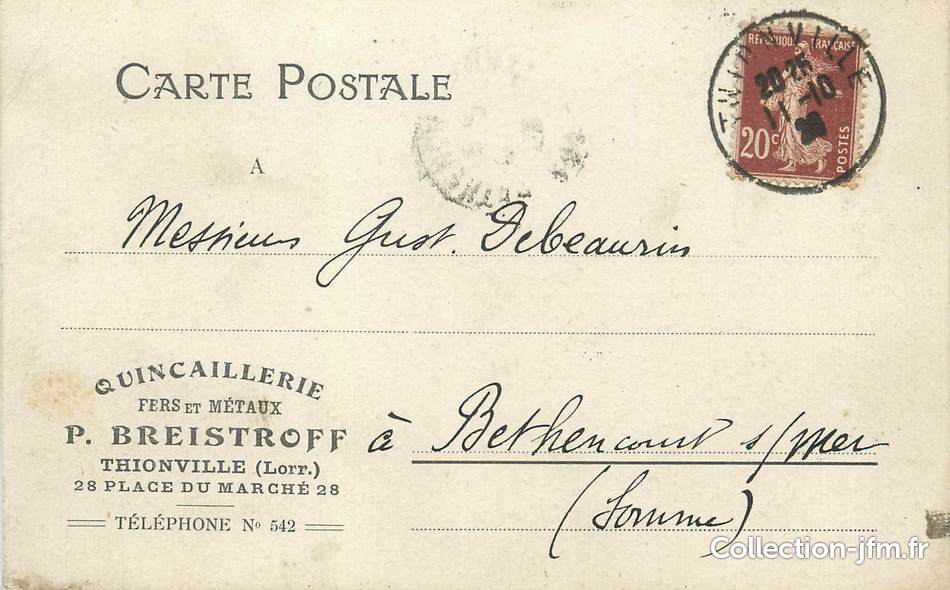 CARTE POSTALE
THIONVILLE
20-25
11-10
REPUBLIQUE FRANÇAISE
20c
POSTES
A
Messieurs Gust. Debeaurin
QUINCAILLERIE
FERS ET MÉTAUX
P. BREISTROFF
THIONVILLE (Lorr.)
28 PLACE DU MARCHÉ 28
TÉLÉPHONE No 542
à Bethencourt s/mer
(Somme)
Collection-jfm.fr